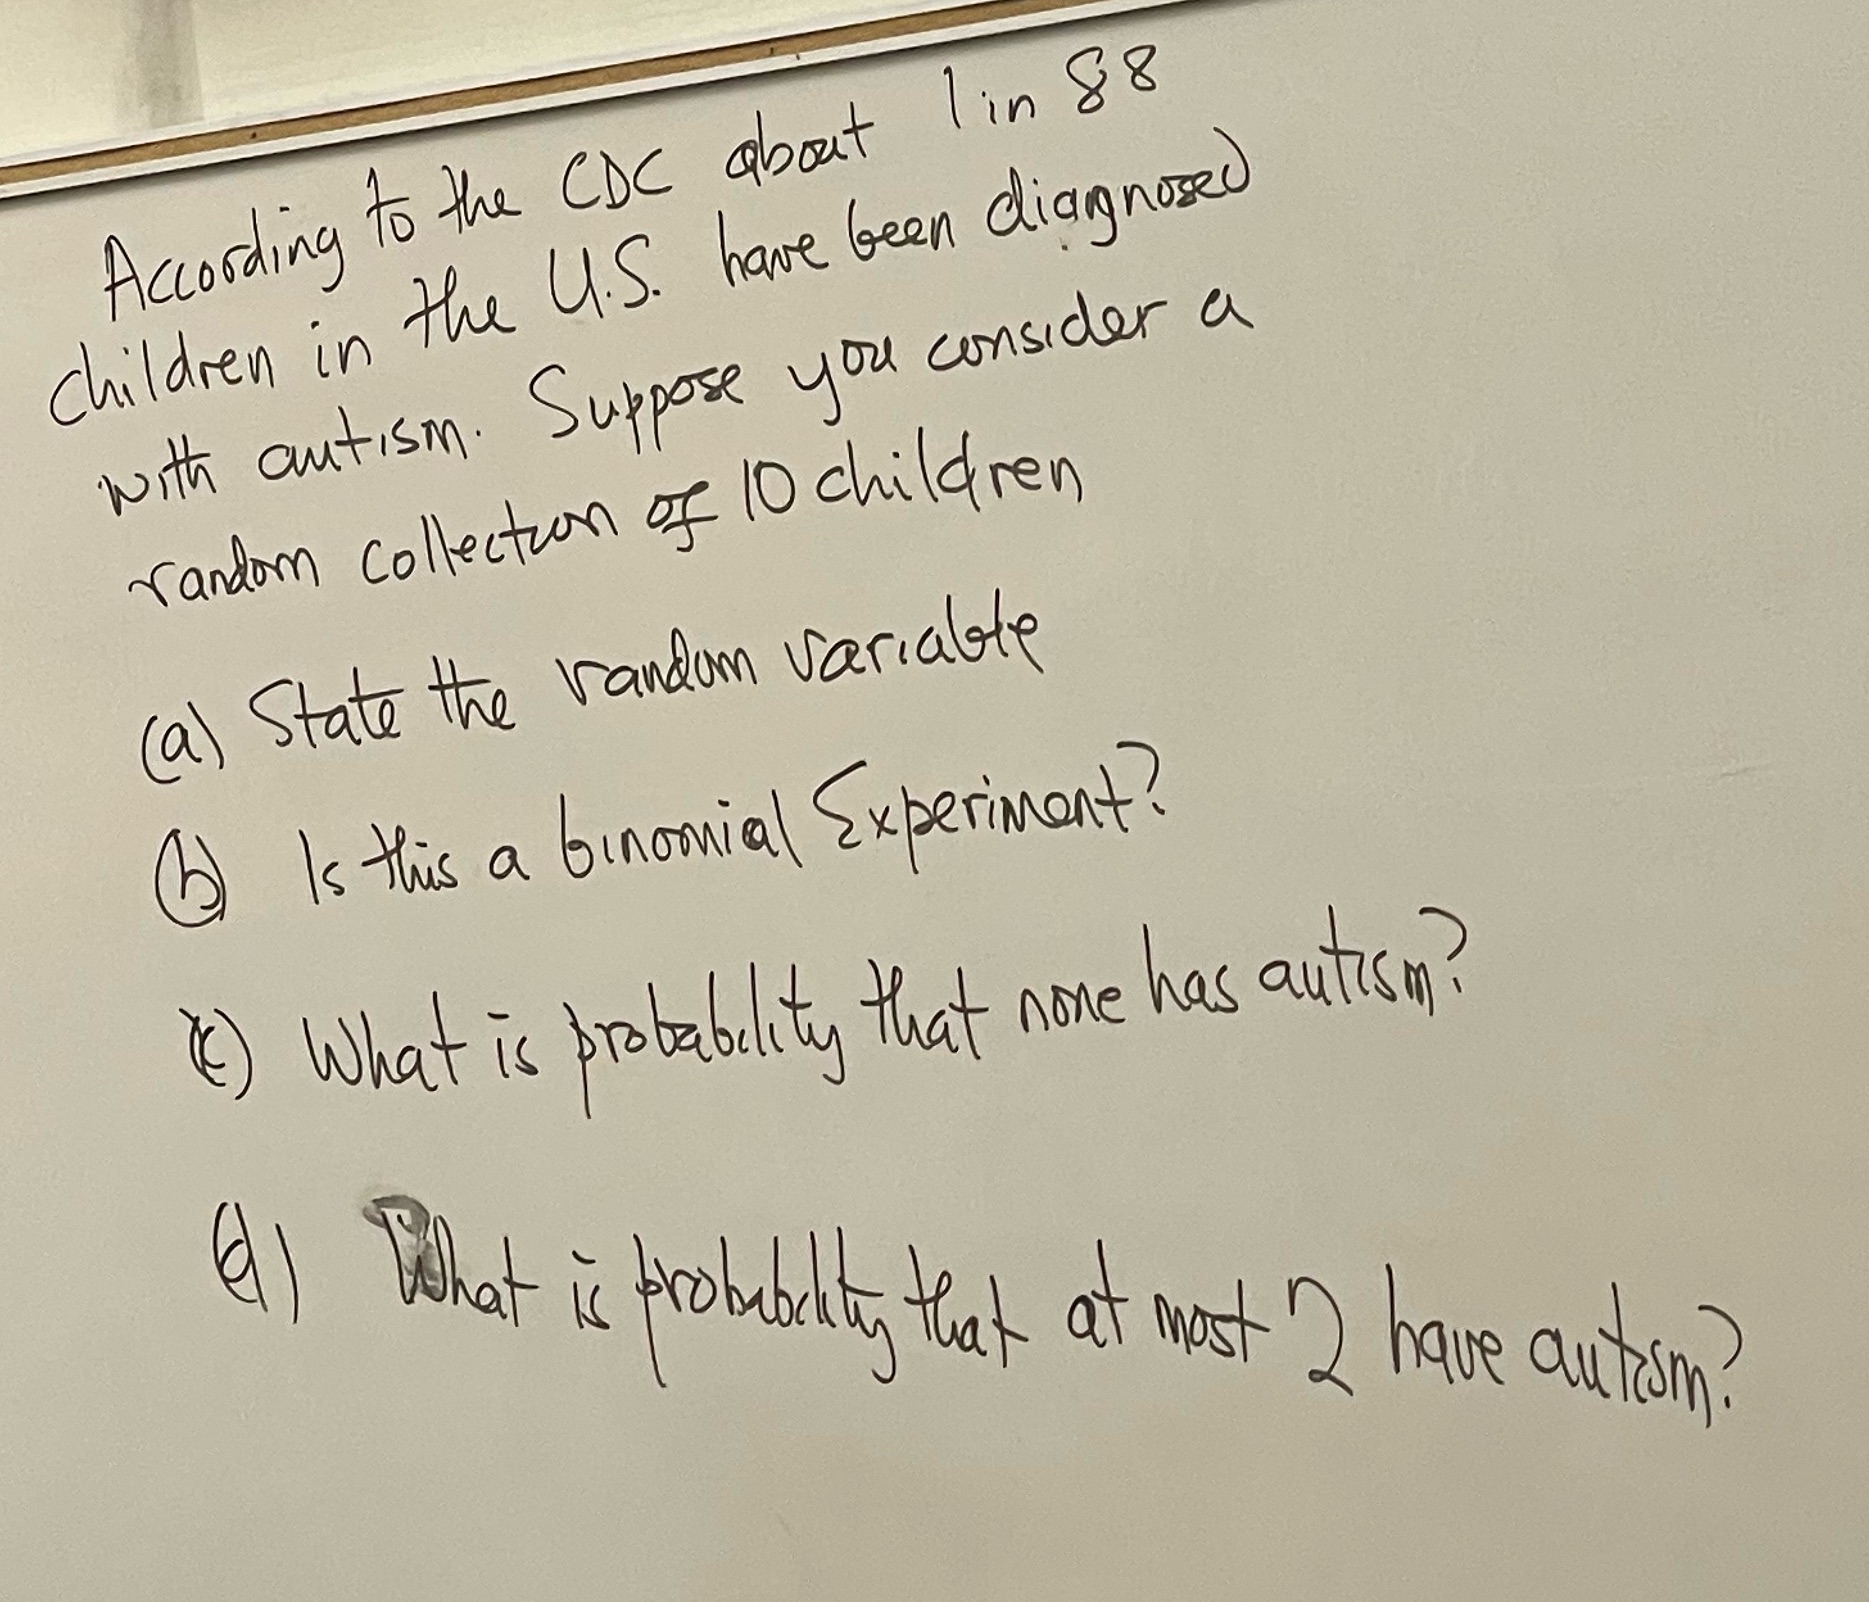 According to the CDC about 1 in 88
children in the U.S. have been diagnosed
with autism. Suppose you consider a
random collection of 10 children
(a) State the random variable
(b) Is this a binomial Experiment?
(c) What is probability that none has autism?
(d) What is probability that at most 2 have autism?